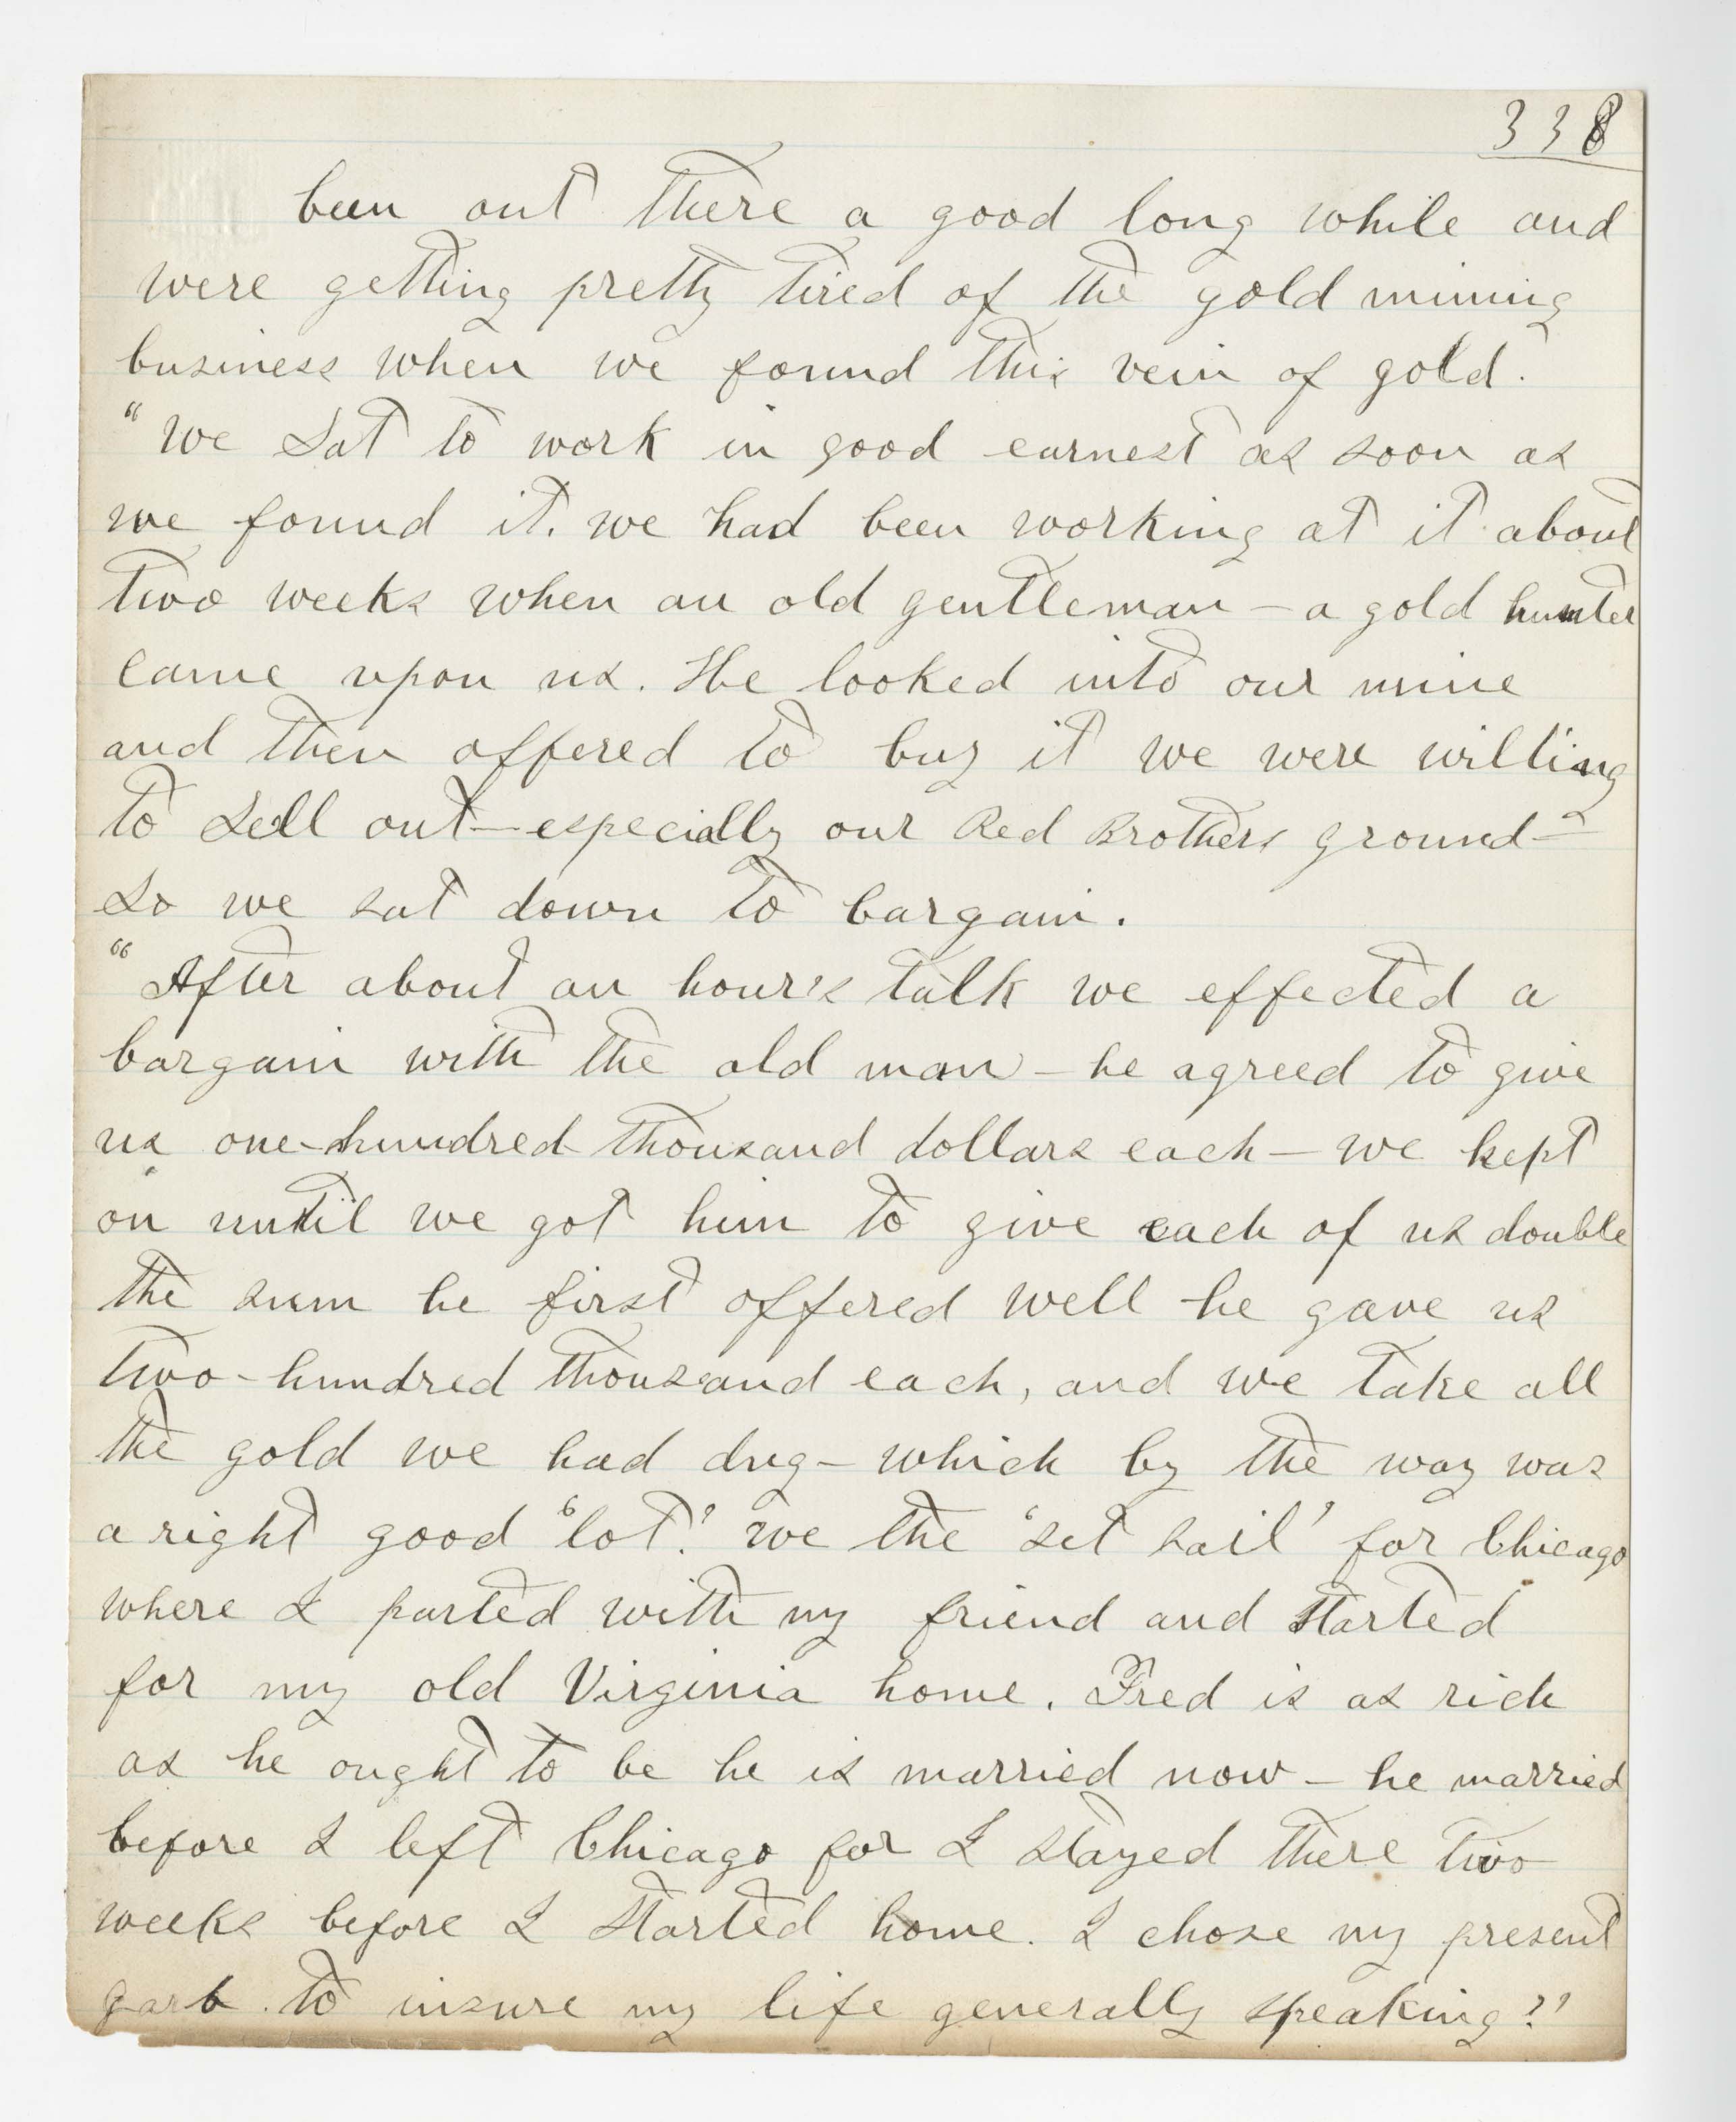 338
been out there a good long while and
were getting pretty tired of the gold mining
business when we found this vein of gold.
"We Sat to work in good earnest as soon as
we found it. we had been working at it about
two weeks when an old gentleman – a gold hunter
came upon us. He looked into our mine
and then offered to buy it we were willing
to Sell out – especially our Red Brothers ground –
So we sat down to bargain.
"After about an hour's talk we effected a
bargain with the old man – he agreed to give
us one-hundred thousand dollars each – we kept
on until we got him to give each of us double
the sum he first offered well he gave us
two-hundred thousand each, and we take all
the gold we had dug – which by the way was
a right good 'lot.' we the 'set sail' for Chicago
where I parted with my friend and started
for my old Virginia home. Fred is as rich
as he ought to be he is married now – he married
before I left Chicago for I stayed there two
weeks before I started home. I chose my present
garb to insure my life generally speaking."